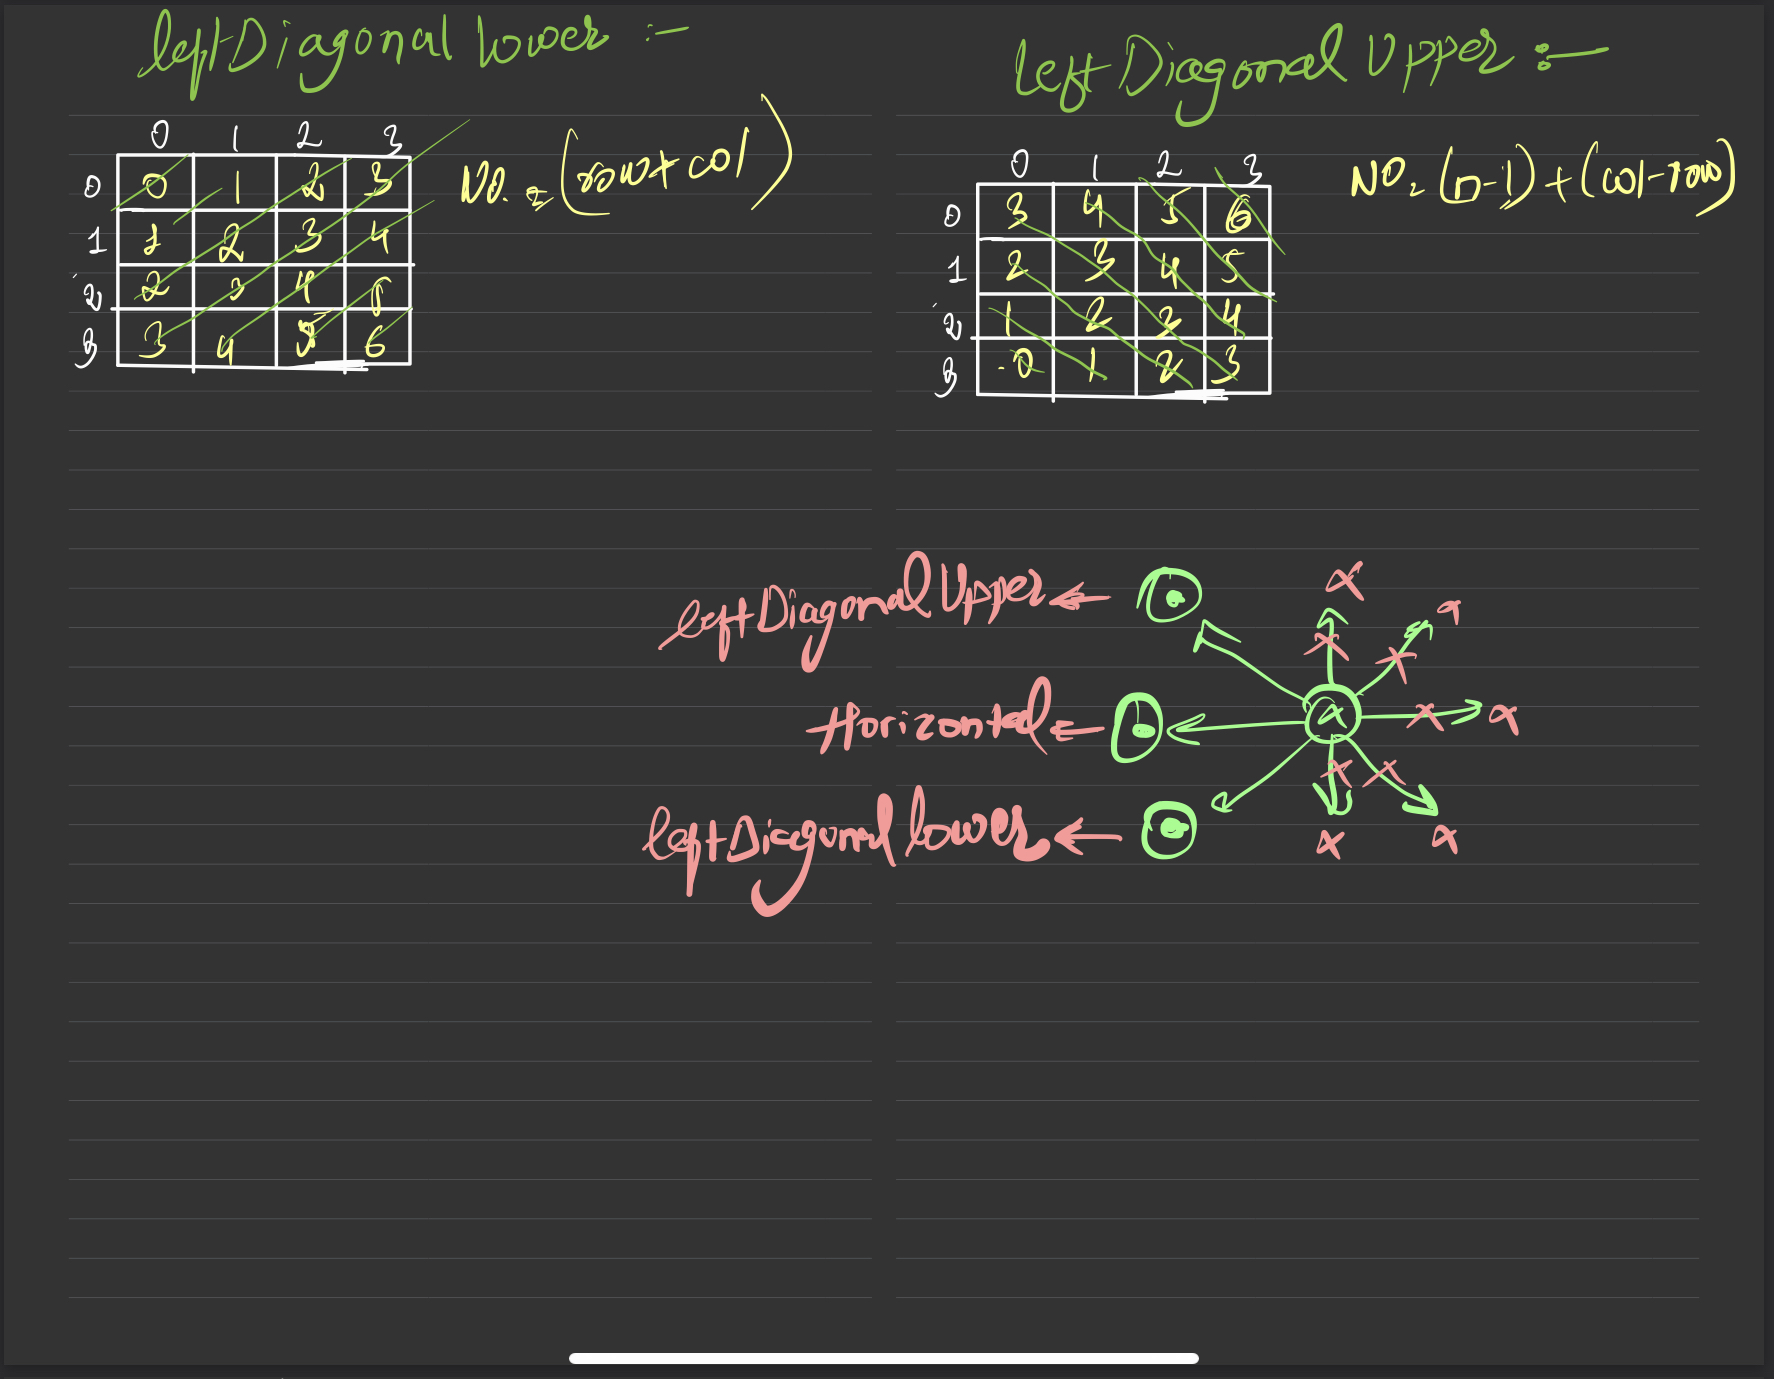 leftDiagonal lower :-
0 1 2 3
0 0 1 2 3
1 1 2 3 4
2 2 3 4 5
3 3 4 5 6
NO. = (row + col)
left Diagonal Upper :-
0 1 2 3
0 3 4 5 6
1 2 3 4 5
2 1 2 3 4
3 0 1 2 3
NO = (n-1) + (col-row)
leftDiagonal Upper
Horizontal
leftDiagonal lower